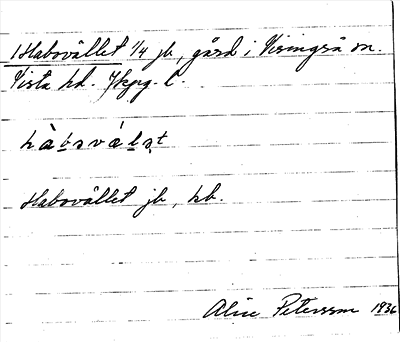 Habovället 1/4 jb, gård i Visingsö sn.
Vista hd. Jkpg. l.
hàboválət
Habovället jb, kb.
Alice Petersson 1936